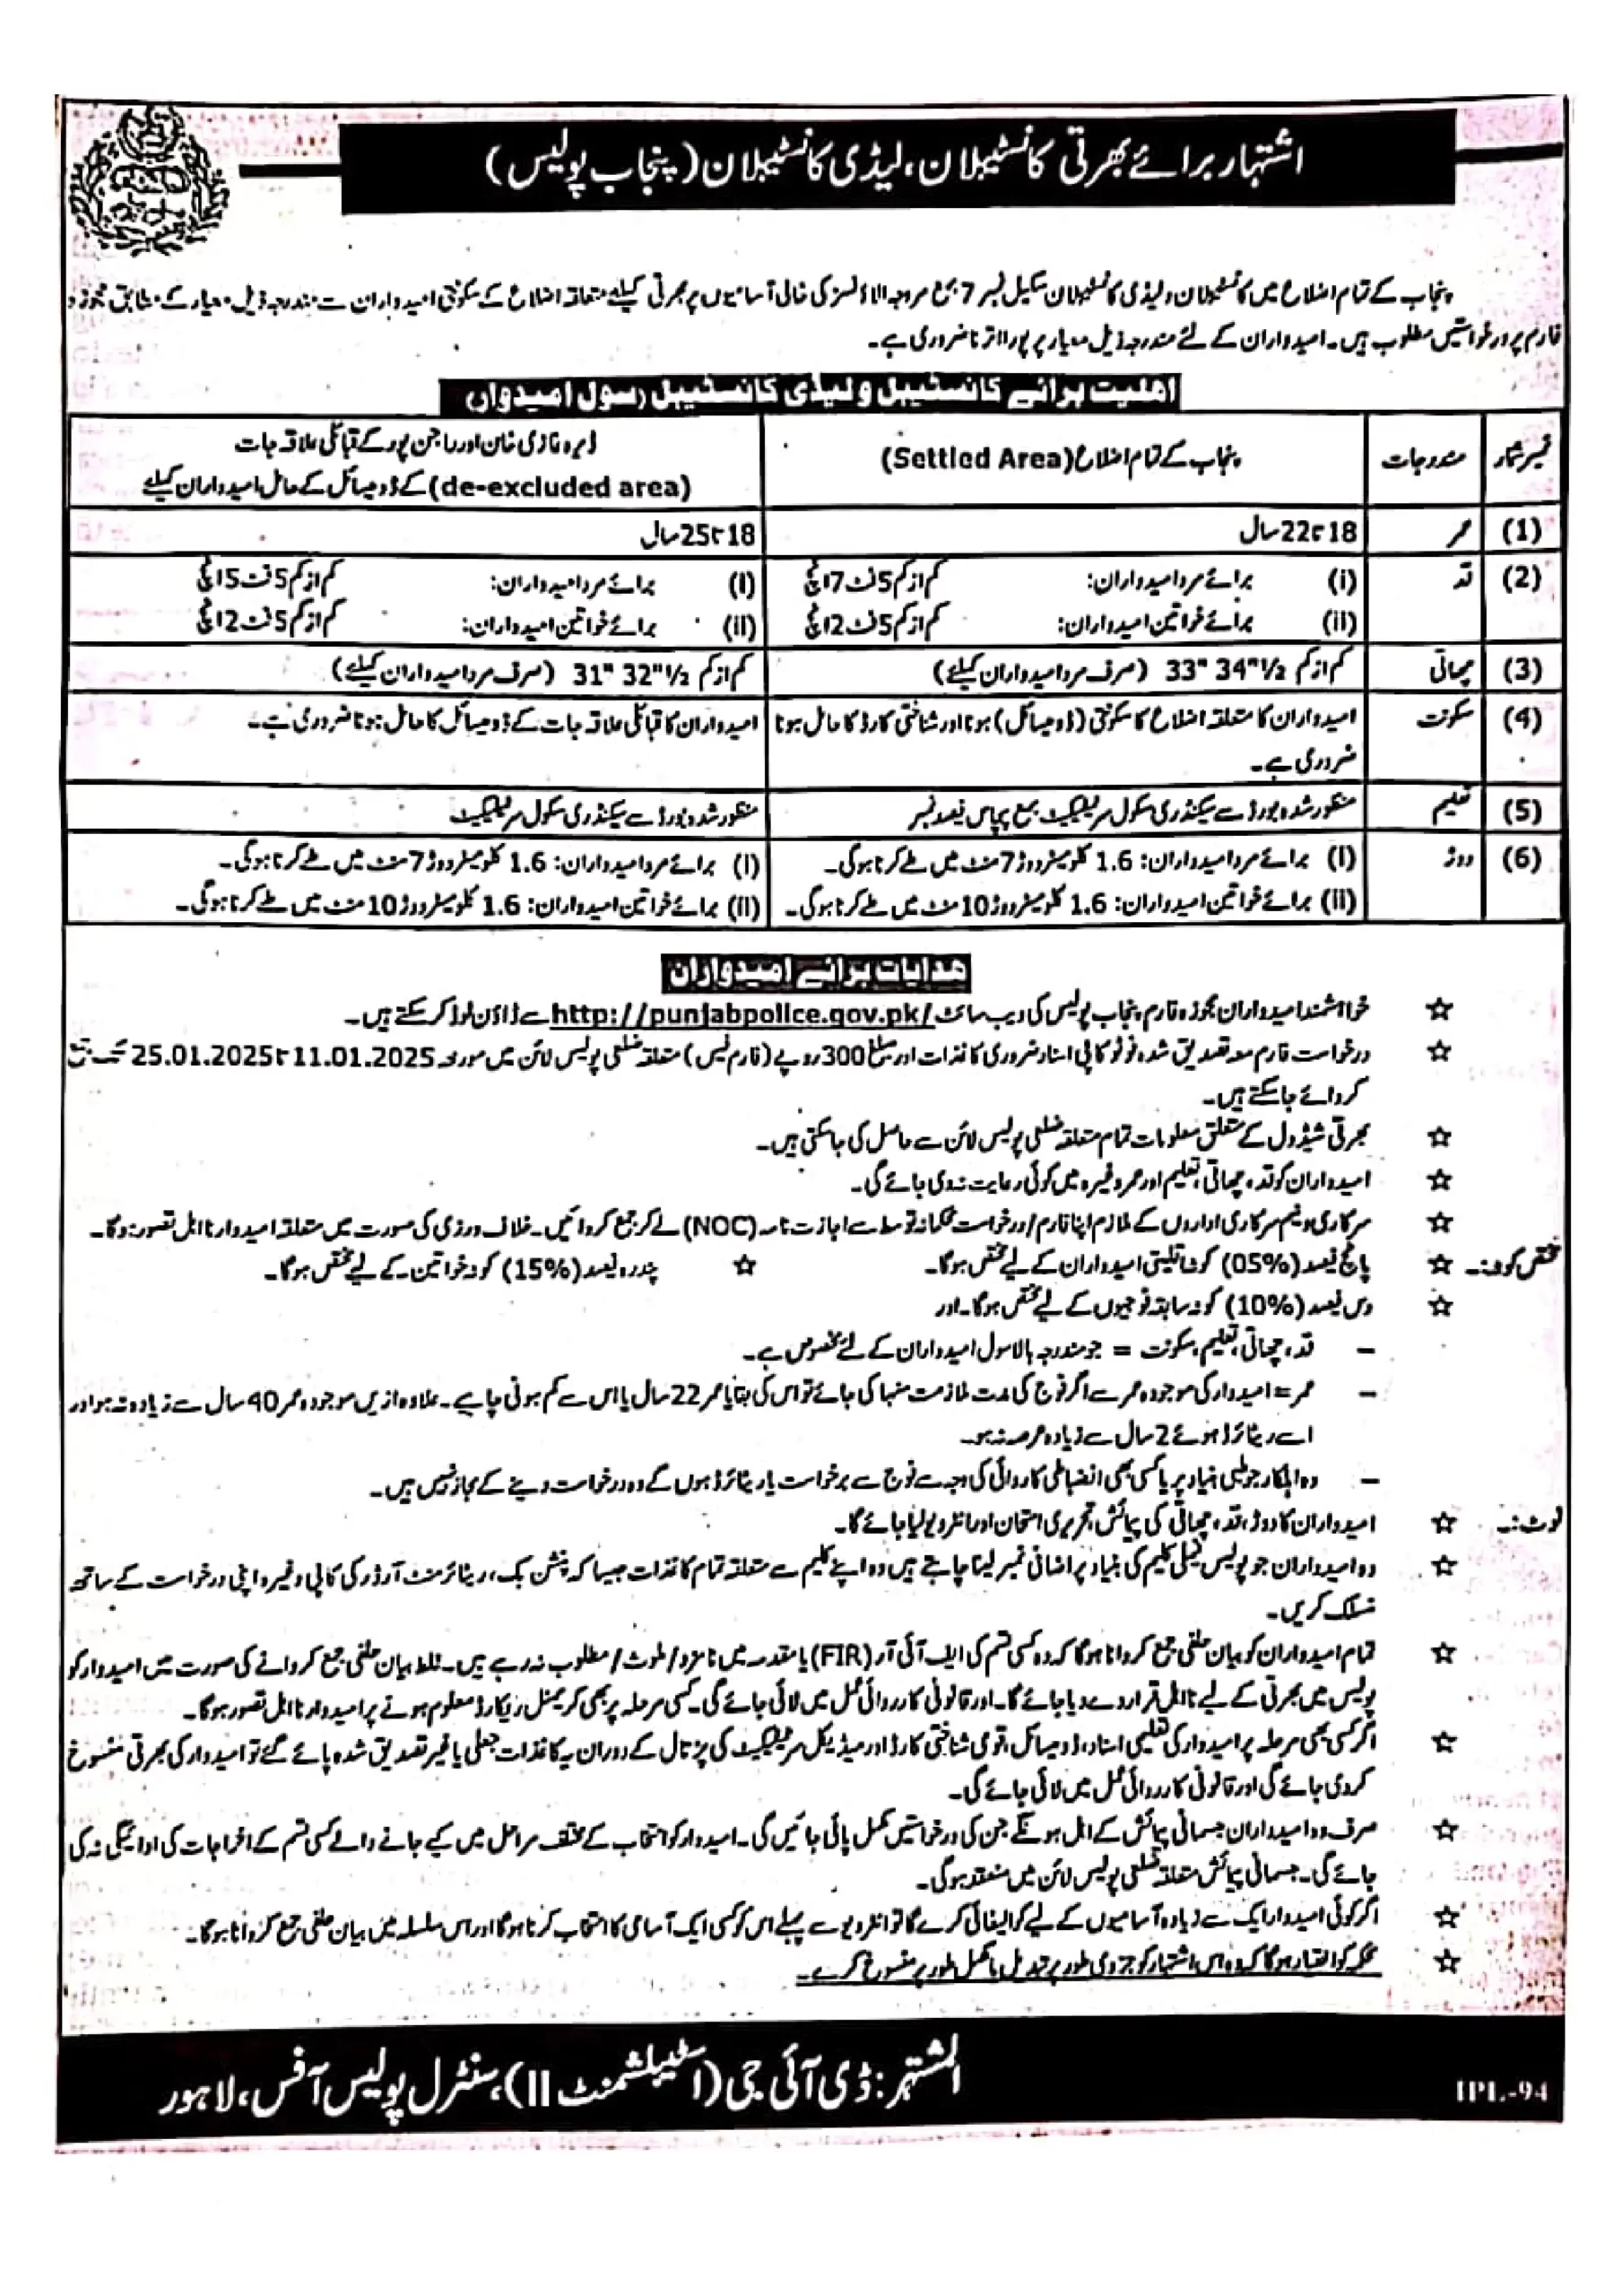 اشتہار برائے بھرتی کانسٹیبلان، لیڈی کانسٹیبلان (پنجاب پولیس)
پنجاب کے تمام اضلاع میں کانسٹیبلان و لیڈی کانسٹیبلان سکیل نمبر 7 بمع مروجہ الاؤنسز کی خالی آسامیوں پر بھرتی کیلئے متعلقہ اضلاع کے سکونتی امیدواران سے مندرجہ ذیل معیار کے مطابق مجوزہ
فارم پر درخواستیں مطلوب ہیں۔ امیدواران کے لئے مندرجہ ذیل معیار پر پورا اترنا ضروری ہے۔
اھلیت برائے کانسٹیبل و لیڈی کانسٹیبل (سول امیدوار)
نمبر شمار مندرجات پنجاب کے تمام اضلاع (Settled Area) ڈیرہ غازی خان اور راجن پور کے قبائلی علاقہ جات
(de-excluded area) کے ڈومیسائل کے حامل امیدواران کیلئے
(1) عمر 18 تا 22 سال 18 تا 25 سال
(2) قد (i) برائے مرد امیدواران: کم از کم 5 فٹ 7 انچ (i) برائے مرد امیدواران: کم از کم 5 فٹ 5 انچ
(ii) برائے خواتین امیدواران: کم از کم 5 فٹ 2 انچ (ii) برائے خواتین امیدواران: کم از کم 5 فٹ 2 انچ
(3) چھاتی کم از کم 33" 34"½ (صرف مرد امیدواران کیلئے) کم از کم 31" 32"½ (صرف مرد امیدواران کیلئے)
(4) سکونت امیدواران کا متعلقہ اضلاع کا سکونتی (ڈومیسائل) ہونا اور شناختی کارڈ کا حامل ہونا امیدواران کا قبائلی علاقہ جات کے ڈومیسائل کا حامل ہونا ضروری ہے۔
ضروری ہے۔
(5) تعلیم منظور شدہ بورڈ سے سیکنڈری سکول سرٹیفکیٹ بمع پچاس فیصد نمبر منظور شدہ بورڈ سے سیکنڈری سکول سرٹیفکیٹ
(6) دوڑ (i) برائے مرد امیدواران: 1.6 کلومیٹر دوڑ 7 منٹ میں طے کرنا ہوگی۔ (i) برائے مرد امیدواران: 1.6 کلومیٹر دوڑ 7 منٹ میں طے کرنا ہوگی۔
(ii) برائے خواتین امیدواران: 1.6 کلومیٹر دوڑ 10 منٹ میں طے کرنا ہوگی۔ (ii) برائے خواتین امیدواران: 1.6 کلومیٹر دوڑ 10 منٹ میں طے کرنا ہوگی۔
ھدایات برائے امیدواران
☆ خواہشمند امیدواران مجوزہ فارم پنجاب پولیس کی ویب سائٹ http://punjabpolice.gov.pk/ سے ڈاؤن لوڈ کر سکتے ہیں۔
☆ درخواست فارم معہ تصدیق شدہ فوٹو کاپی اسناد ضروری کاغذات اور مبلغ 300 روپے (فارم فیس) متعلقہ ضلعی پولیس لائن میں مورخہ 11.01.2025 تا 25.01.2025 تک جمع
کروائے جا سکتے ہیں۔
☆ بھرتی شیڈول کے متعلق معلومات تمام متعلقہ ضلعی پولیس لائن سے حاصل کی جا سکتی ہیں۔
☆ امیدواران کو قد، چھاتی، تعلیم اور عمر وغیرہ میں کوئی رعایت نہ دی جائے گی۔
☆ سرکاری و نیم سرکاری اداروں کے ملازم اپنا فارم/درخواست محکمانہ توسط سے اجازت نامہ (NOC) لے کر جمع کروائیں۔ خلاف ورزی کی صورت میں متعلقہ امیدوار نااہل تصور ہوگا۔
مختص کوٹہ:۔ ☆ پانچ فیصد (05%) کوٹہ اقلیتی امیدواران کے لیے مختص ہوگا۔ ☆ پندرہ فیصد (15%) کوٹہ خواتین کے لیے مختص ہوگا۔
☆ دس فیصد (10%) کوٹہ سابقہ فوجیوں کے لیے مختص ہوگا۔ اور
– قد، چھاتی، تعلیم، سکونت = جو مندرجہ بالا سول امیدواران کے لئے مخصوص ہے۔
– عمر = امیدوار کی موجودہ عمر سے اگر فوج کی مدت ملازمت منہا کی جائے تو اس کی بقایا عمر 22 سال یا اس سے کم ہونی چاہیے۔ علاوہ ازیں موجودہ عمر 40 سال سے زیادہ نہ ہو اور
اسے ریٹائرڈ ہوئے 2 سال سے زیادہ عرصہ نہ ہو۔
– وہ اہلکار جو طبی بنیاد پر یا کسی بھی انضباطی کاروائی کی وجہ سے فوج سے برخواست یا ریٹائرڈ ہوں گے وہ درخواست دینے کے مجاز نہیں ہیں۔
نوٹ:۔ ☆ امیدواران کا دوڑ، قد، چھاتی کی پیمائش، تحریری امتحان اور انٹرویو لیا جائے گا۔
☆ وہ امیدواران جو پولیس فیملی کلیم کی بنیاد پر اضافی نمبر لینا چاہتے ہیں وہ اپنے کلیم سے متعلقہ تمام کاغذات جیسا کہ پنشن بک، ریٹائرمنٹ آرڈر کی کاپی وغیرہ اپنی درخواست کے ساتھ
منسلک کریں۔
☆ تمام امیدواران کو بیان حلفی جمع کروانا ہوگا کہ وہ کسی قسم کی ایف آئی آر (FIR) یا مقدمہ میں نامزد/ملوث/مطلوب نہ رہے ہیں۔ غلط بیان حلفی جمع کروانے کی صورت میں امیدوار کو
پولیس میں بھرتی کے لیے نااہل قرار دے دیا جائے گا۔ اور قانونی کارروائی عمل میں لائی جائے گی۔ کسی مرحلہ پر بھی کریمنل ریکارڈ معلوم ہونے پر امیدوار نااہل تصور ہوگا۔
☆ اگر کسی بھی مرحلہ پر امیدوار کی تعلیمی اسناد، ڈومیسائل، قومی شناختی کارڈ اور میڈیکل سرٹیفکیٹ کی پڑتال کے دوران یہ کاغذات جعلی یا غیر تصدیق شدہ پائے گئے تو امیدوار کی بھرتی منسوخ
کر دی جائے گی اور قانونی کارروائی عمل میں لائی جائے گی۔
☆ صرف وہ امیدواران جسمانی پیمائش کے اہل ہونگے جن کی درخواستیں مکمل پائی جائیں گی۔ امیدوار کو انتخاب کے مختلف مراحل میں کیے جانے والے کسی قسم کے اخراجات کی ادائیگی نہ کی
جائے گی۔ جسمانی پیمائش متعلقہ ضلعی پولیس لائن میں منعقد ہوگی۔
☆ اگر کوئی امیدوار ایک سے زیادہ آسامیوں کے لیے کوالیفائی کرے گا تو انٹرویو سے پہلے اس کو کسی ایک آسامی کا انتخاب کرنا ہوگا اور اس سلسلہ میں بیان حلفی جمع کروانا ہوگا۔
☆ محکمہ کو اختیار ہوگا کہ وہ اس اشتہار کو جزوی طور پر تبدیل یا مکمل طور پر منسوخ کرے۔
المشتہر: ڈی آئی جی (اسٹیبلشمنٹ II)، سنٹرل پولیس آفس، لاہور
IPL-94